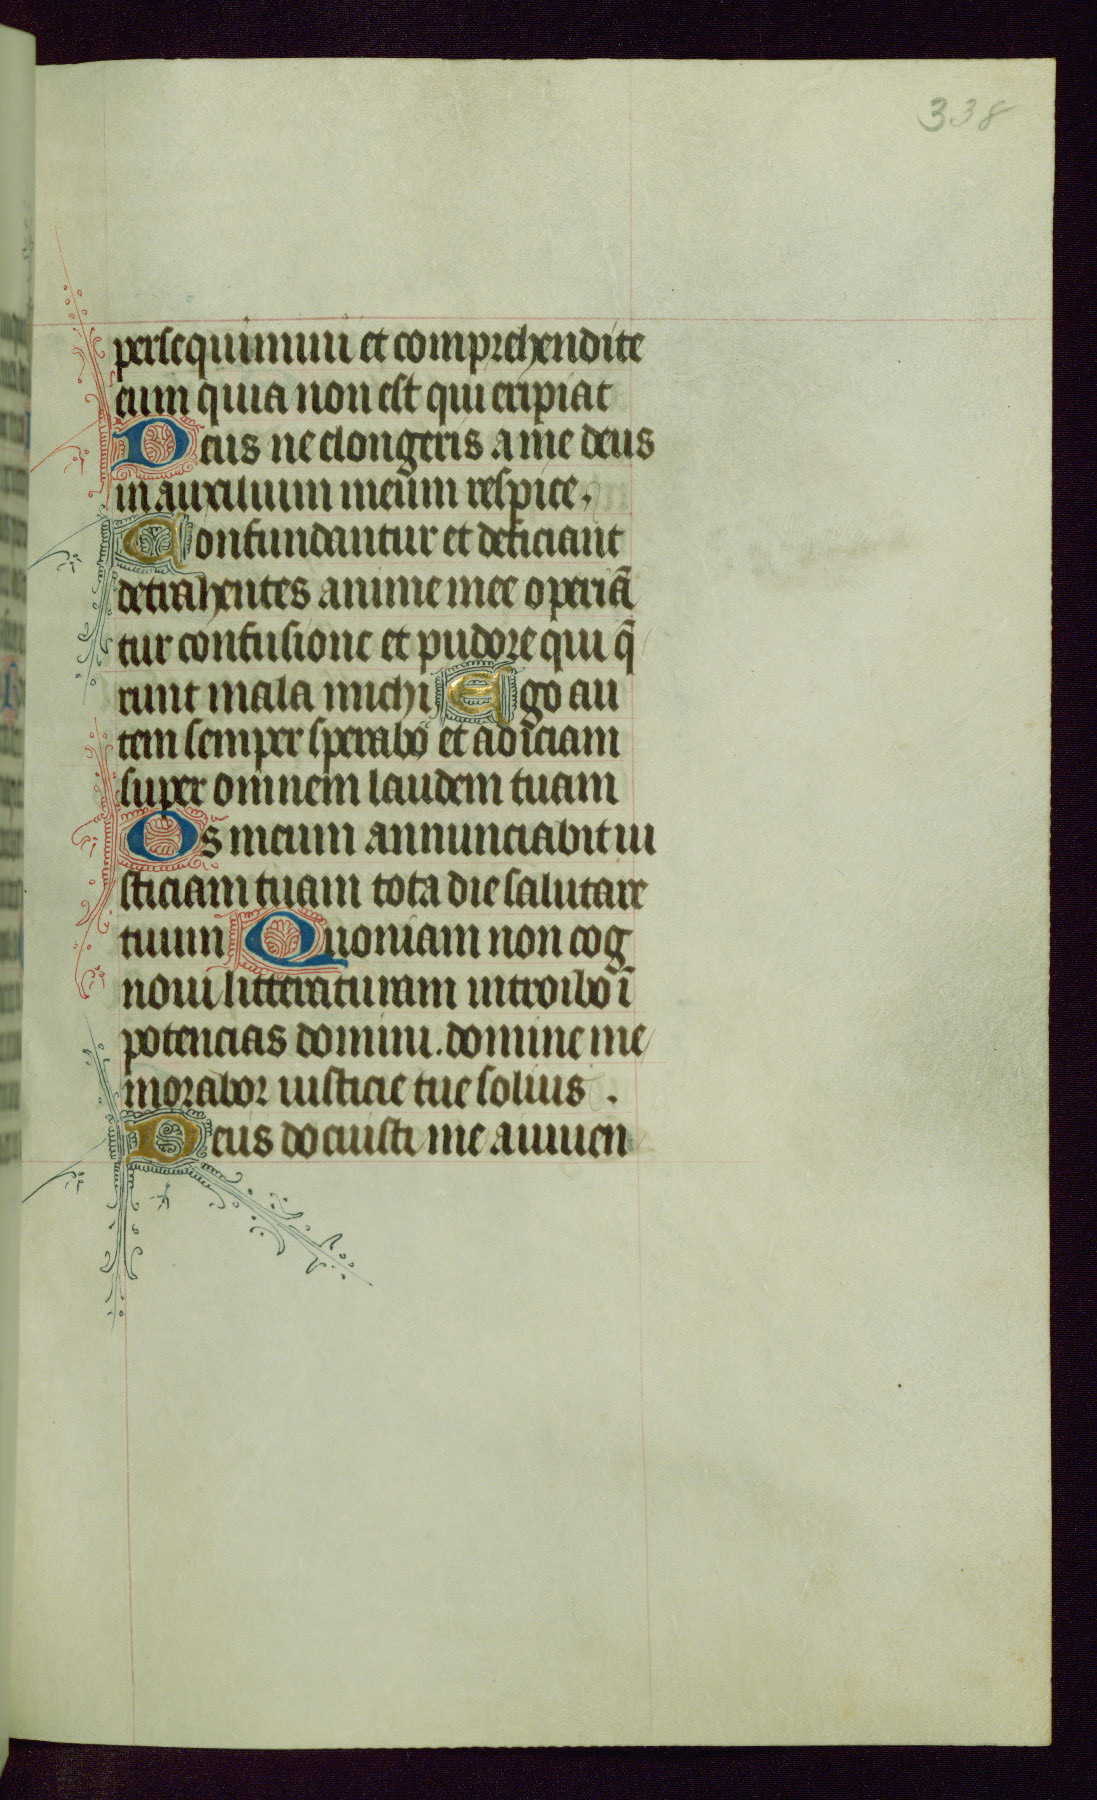 338
persequimini et comprehendite
eum quia non est qui eripiat
Deus ne elongeris a me deus
in auxilium meum respice.
Confundantur et deficiant
detrahentes anime mee operiā
tur confusione et pudore qui q̄
runt mala michi Ego au
tem semper sperabo et adiciam
super omnem laudem tuam
Os meum annunciabit iu
sticiam tuam tota die salutare
tuum Quoniam non cog
noui litteraturam introibo ī
potencias domini. domine me
morabor iusticie tue solius.
Deus docuisti me a iuuen